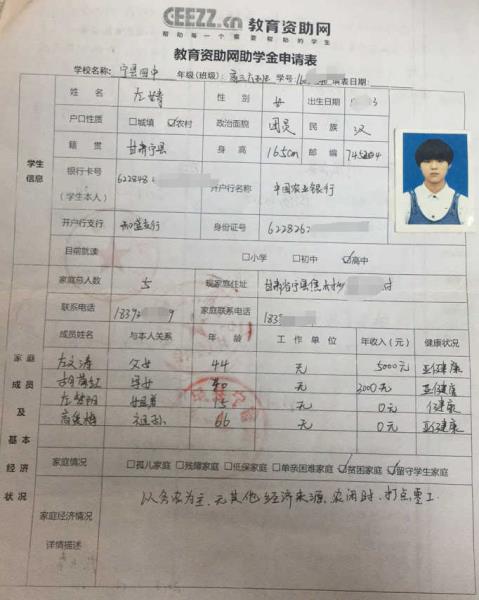 CEEZZ.cn 教育资助网
帮助每一个需要帮助的学生
教育资助网助学金申请表
学校名称: 宁县四中 年级(班级): 高三 学号: 填表日期:
姓名 左 性别 女 出生日期 3
户口性质 □城填 ☑农村 政治面貌 团员 民族 汉
籍贯 甘肃宁县 身高 165cm 邮编 745204
学生信息
银行卡号 622848
(学生本人) 开户行名称 中国农业银行
开户行支行 和盛支行 身份证号 6228262
目前就读 □小学 □初中 ☑高中
家庭总人数 5 现家庭住址 甘肃省宁县焦村 村
联系电话 1839 9 家庭联系电话 183
成员姓名 与本人关系 年龄 工作单位 年收入(元) 健康状况
左文涛 父女 44 无 5000元 亚健康
胡 母女 40 无 3000元 亚健康
左 15 无 0元 健康
高 祖孙 66 无 0元 亚健康
家庭成员及基本经济状况
家庭情况 □孤儿家庭 □残障家庭 □低保家庭 □单亲困难家庭 ☑贫困家庭 ☑留守学生家庭
以务农为主,无其他经济来源,农闲时,打点
家庭经济情况
详情描述